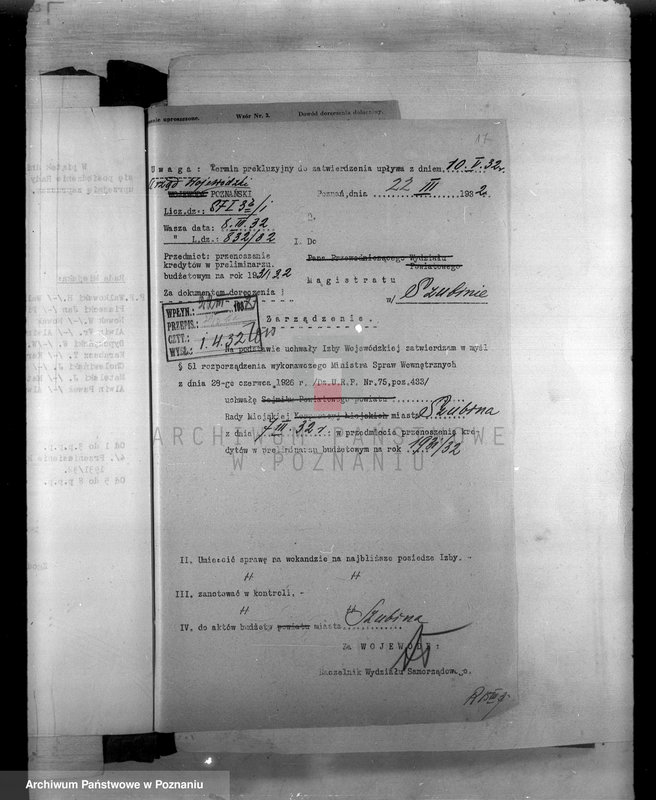 Wzór Nr. 3.
Dowód doręczenia dołączony.
17
Uwaga: Termin prekluzyjny do zatwierdzenia upływa z dniem 10.V.32r.
Urząd Wojewódzki
WOJEWODA POZNAŃSKI
Poznań, dnia 22 III 1932.
Licz.dz.:
Wasza data: 8.III.32
" L.dz.: 832/32
I. Do
Przedmiot: przenoszenie
kredytów w preliminarzu
budżetowym na rok 1931/32
Pana Przewodniczącego Wydziału
Powiatowego
Magistratu
Za dokumentem doręczenia!
w/ Szubinie
WPŁYN.:
PRZEPIS.:
CZYT.:
WYSŁ.: 1.4.32
Zarządzenie.
Na podstawie uchwały Izby Wojewódzkiej zatwierdzam w myśl
§ 51 rozporządzenia wykonawczego Ministra Spraw Wewnętrznych
z dnia 28-go czerwca 1926 r. /Dz.U.R.P. Nr.75,poz.433/
uchwałę Sejmiku Powiatowego powiatu
Rady Miejskiej Korporacyj Miejskich miasta Szubina
z dnia 7 III. 32 r. w przedmiocie przenoszenia kre-
dytów w preliminarzu budżetowym na rok 1931/32
ARCHIWUM PAŃSTWOWE
W POZNANIU
II. Umieścić sprawę na wokandzie na najbliższe posiedz Izby. -
III. zanotować w kontroli. -
IV. do aktów budżety powiatu miasta Szubina
Za WOJEWODĘ:
Naczelnik Wydziału Samorządowego.
Archiwum Państwowe w Poznaniu